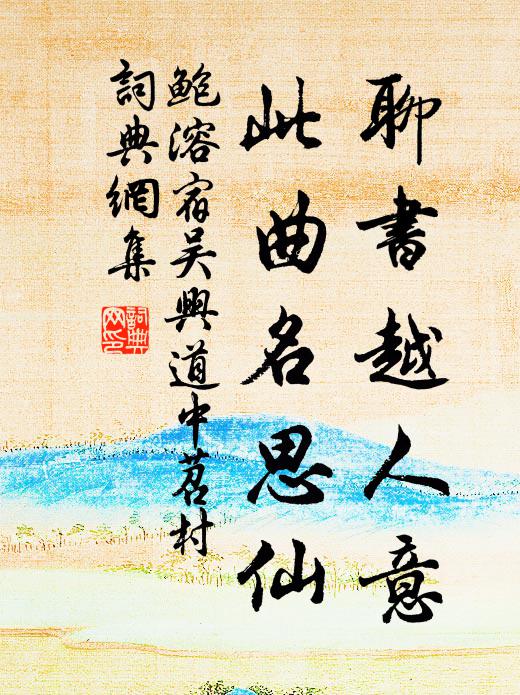 聊書越人意
此曲名思仙
鲍溶宿吴興道中苕村
詞典網集
詞典网印